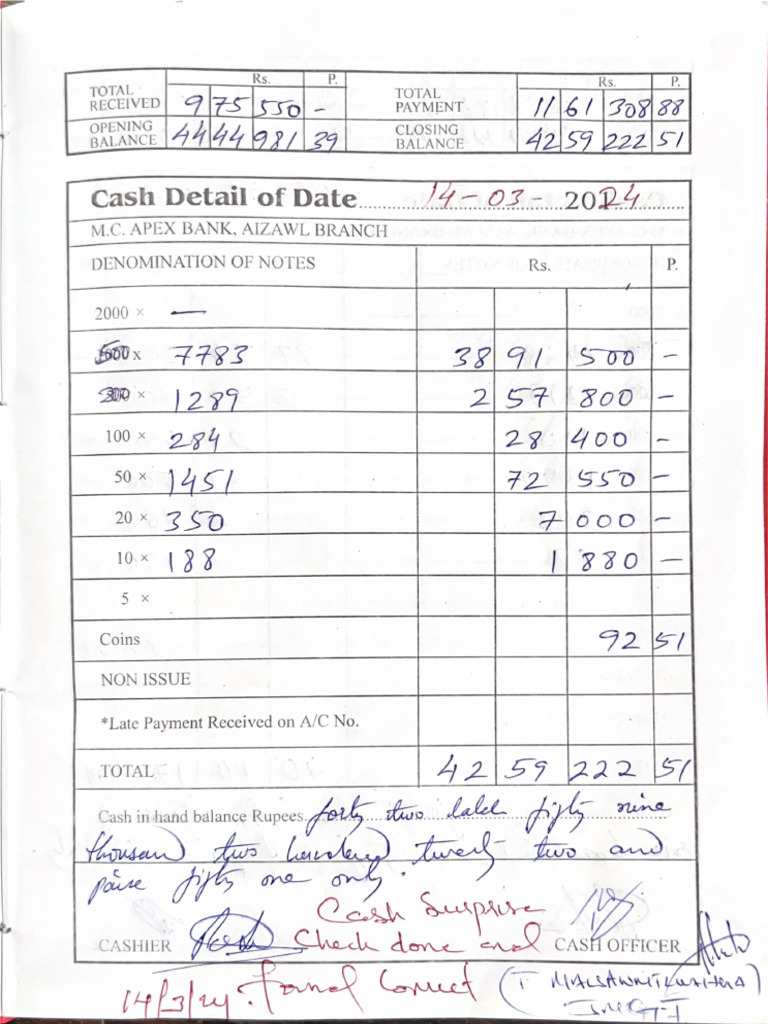 Rs. P. Rs. P.
TOTAL RECEIVED 9 75 550 - TOTAL PAYMENT 11 61 308 88
OPENING BALANCE 44 44 981 39 CLOSING BALANCE 42 59 222 51
Cash Detail of Date 14-03- 2024
M.C. APEX BANK, AIZAWL BRANCH
DENOMINATION OF NOTES Rs. P.
2000 × —
500 x 7783 38 91 500 -
200 × 1289 2 57 800 -
100 × 284 28 400 -
50 × 1451 72 550 -
20 × 350 7 000 -
10 × 188 1 880 —
5 ×
Coins 92 51
NON ISSUE
*Late Payment Received on A/C No.
TOTAL 42 59 222 51
Cash in hand balance Rupees forty two lakh fifty nine
thousand two hundred twenty two and
paise fifty one only.
Cash Surprise
CASHIER Check done and CASH OFFICER
14/3/24. found Correct